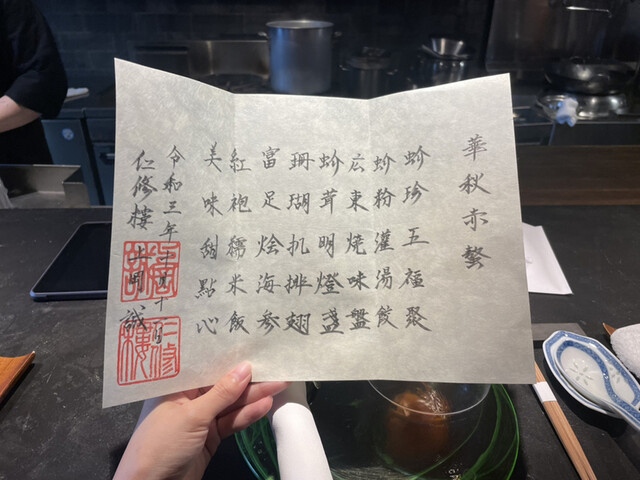 華秋赤螯
蚧珍五福聚
蚧粉灌湯餃
広東焼味盤
蚧茸明燈盞
珊瑚扒排翅
富足烩海参
紅袍糯米飯
美味甜點心
令和三年十月十日
仁修樓 上岡 誠
仁修樓